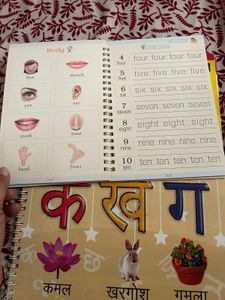 Body
face
mouth
eye
ear
teeth
nose
hand
foot
4 four four four four four
5 five five five five five
6 six six six six six six
7 seven seven seven seven
8 eight eight eight eight
9 nine nine nine nine nine
10 ten ten ten ten ten ten
क ख ग
कमल खरगोश गमला